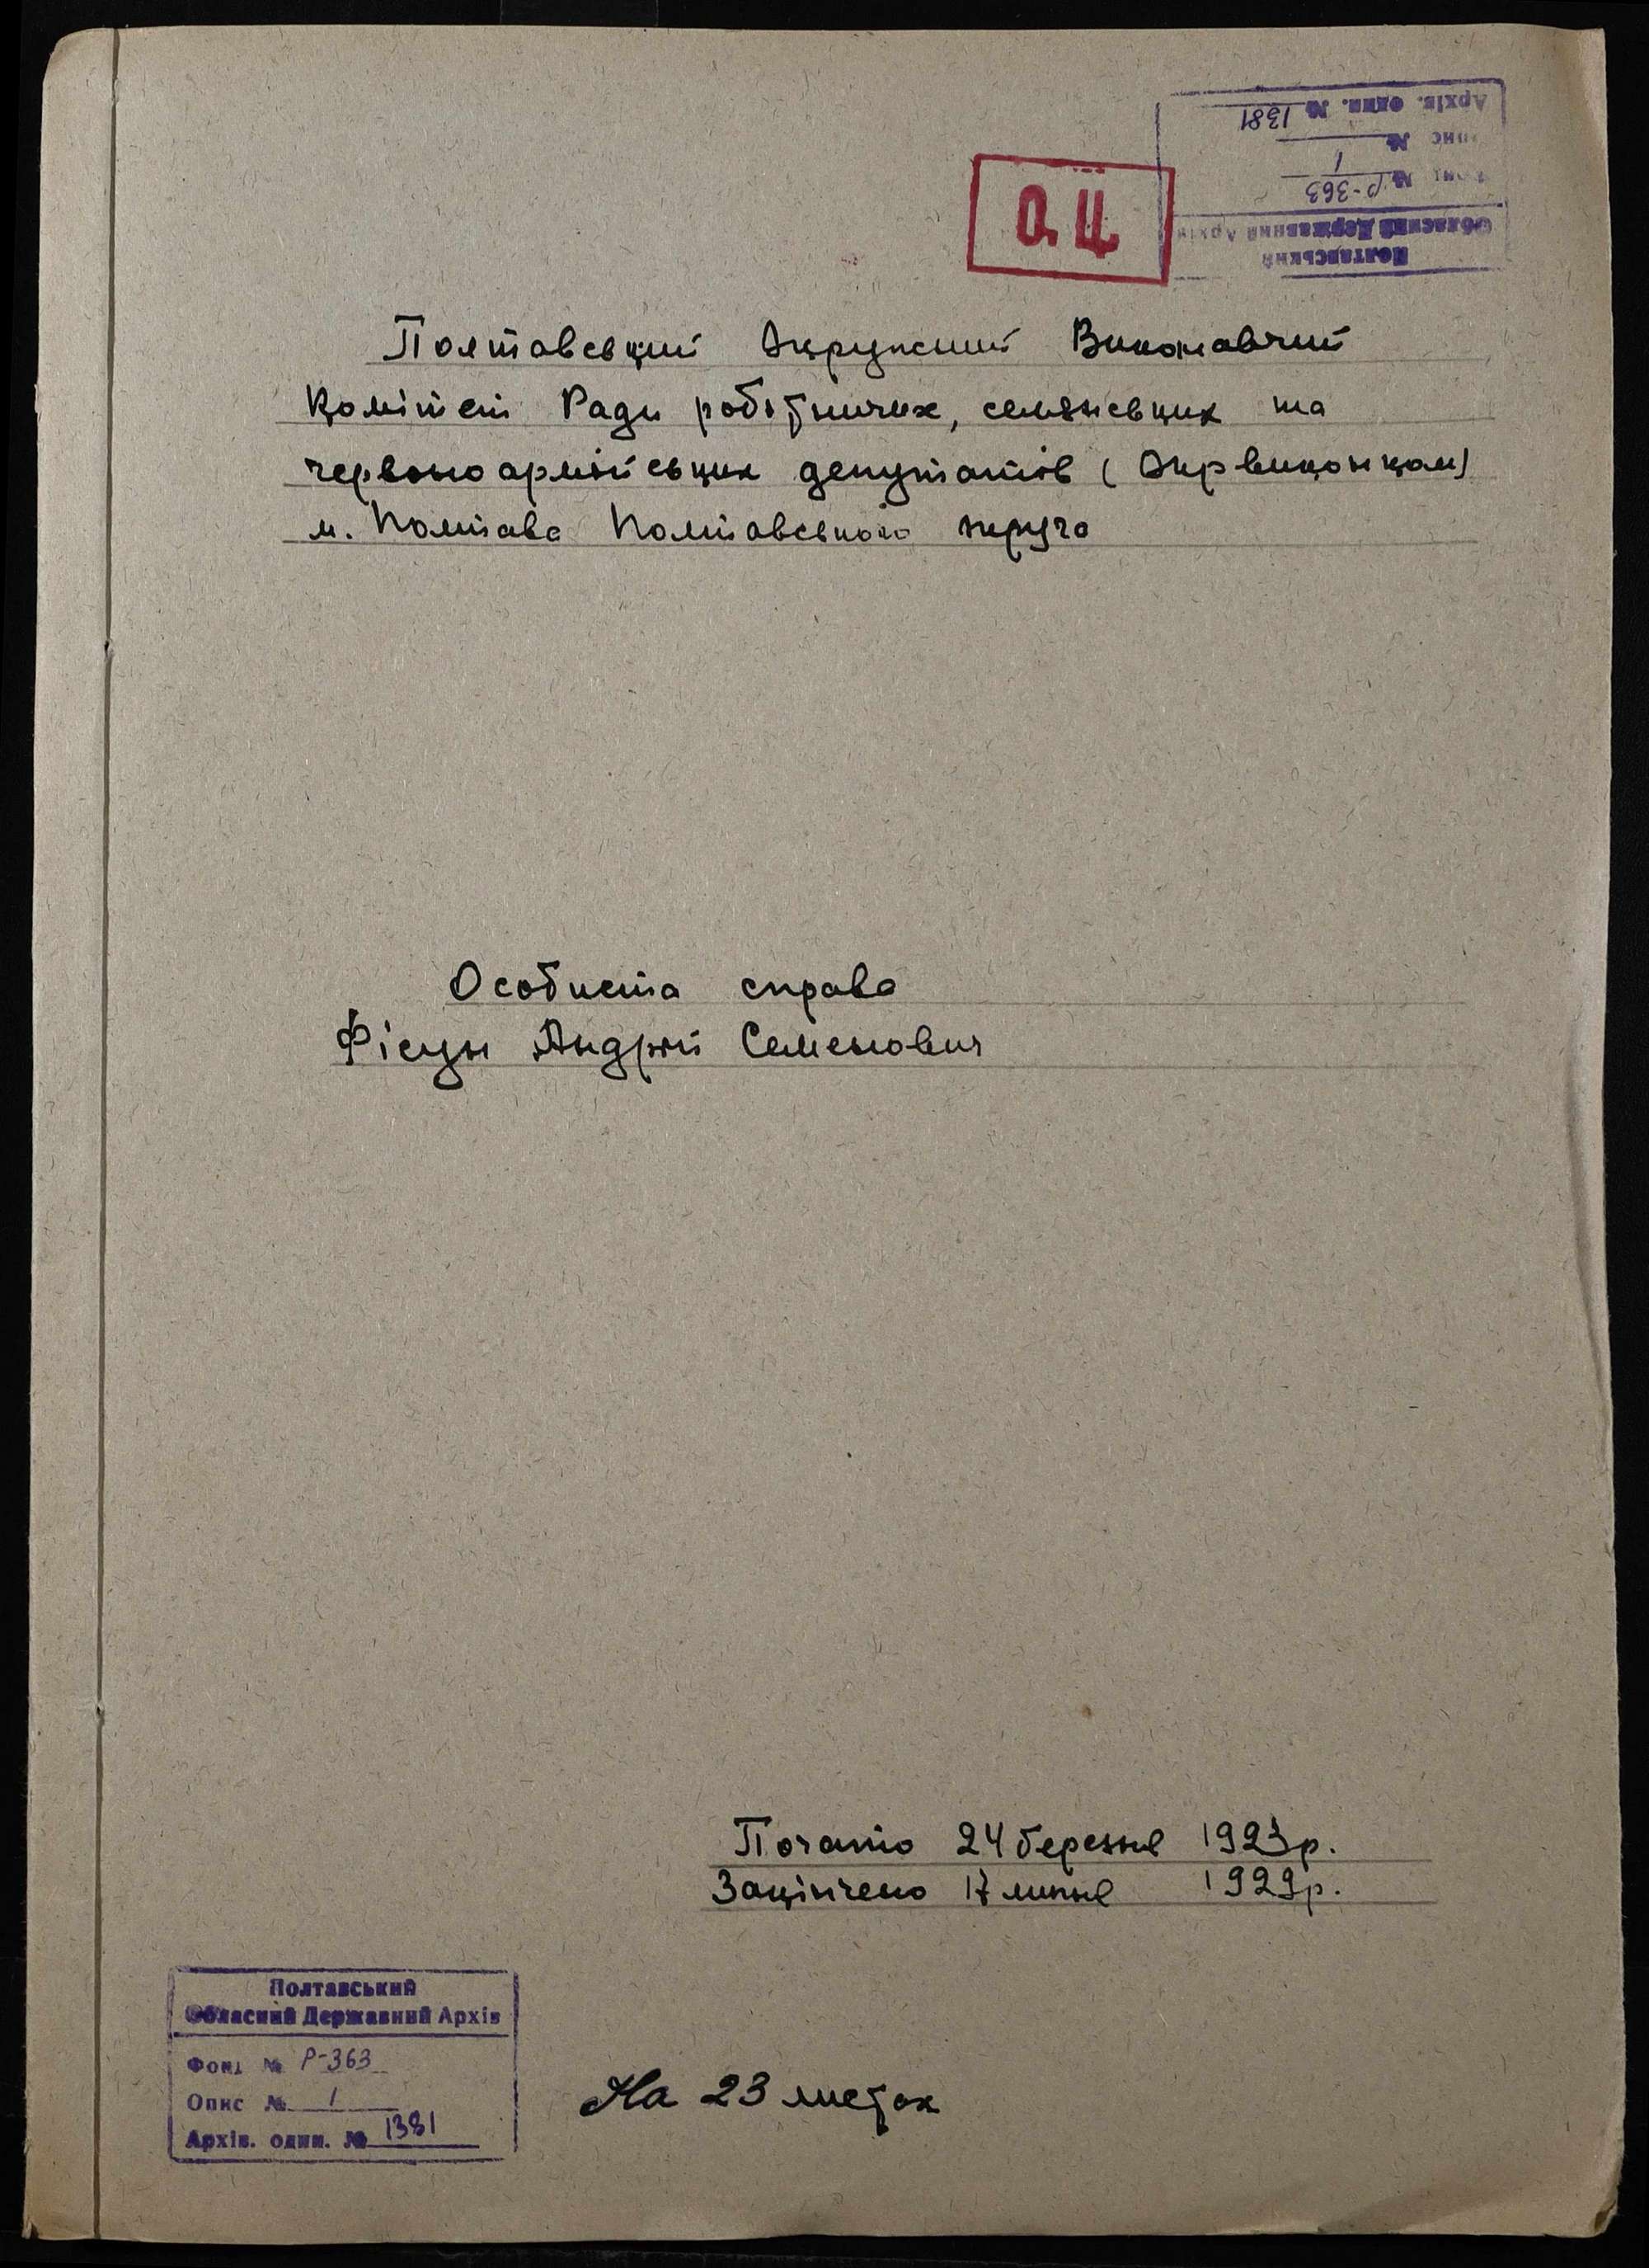 Архів. один. № 1381
опис №
1
Фонд № Р-363
Обласний Державний Архів
Полтавський
О.Ц.
Полтавський Окружний Виконавчий
Комітет Ради робітничих, селянських та
червоноармійських депутатів (Окрвиконком)
м. Полтава Полтавського округа
Особиста справа
Фісун Андрій Семенович
Почато 24 березня 1923р.
Закінчено 17 липня 1929р.
Полтавський
Обласний Державний Архів
Фонд № Р-363
Опис № 1
Архів. один. № 1381
На 23 листах